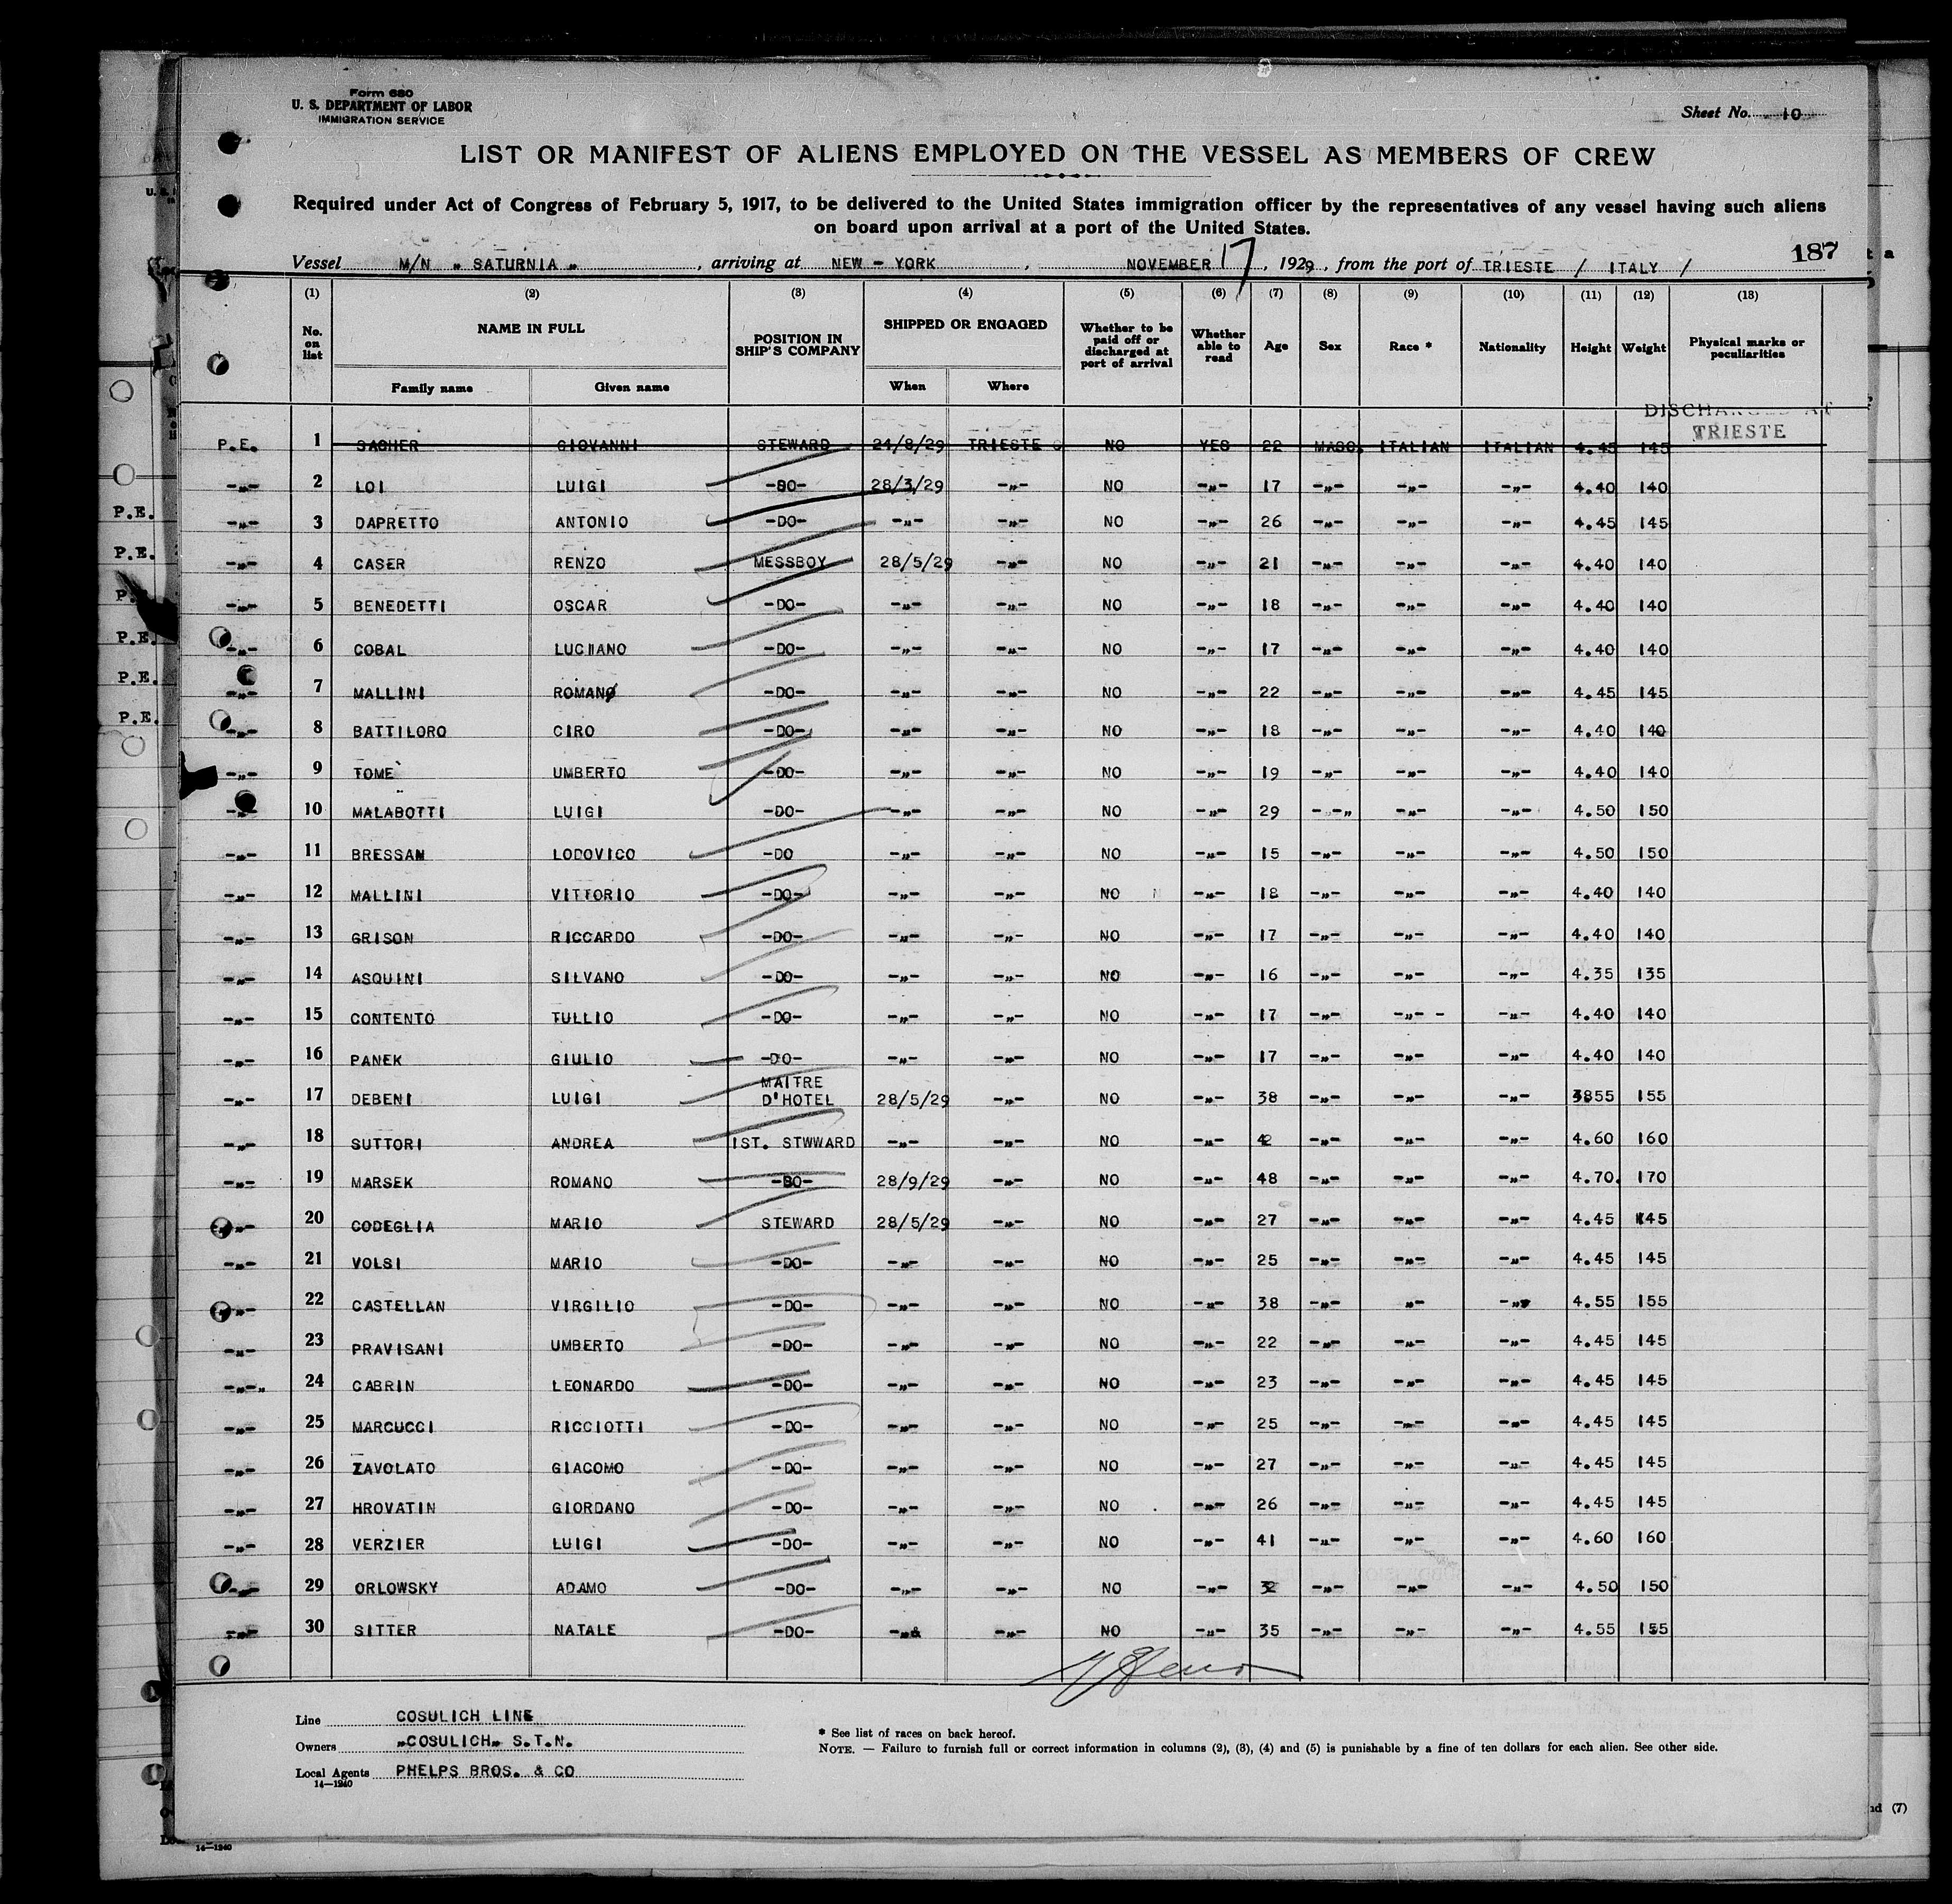 Form 680
U. S. DEPARTMENT OF LABOR
IMMIGRATION SERVICE
Sheet No. 10
LIST OR MANIFEST OF ALIENS EMPLOYED ON THE VESSEL AS MEMBERS OF CREW
Required under Act of Congress of February 5, 1917, to be delivered to the United States immigration officer by the representatives of any vessel having such aliens
on board upon arrival at a port of the United States.
187
Vessel M/N „ SATURNIA „ , arriving at NEW - YORK , NOVEMBER 17 , 1929 , from the port of TRIESTE / ITALY /
(1) (2) (3) (4) (5) (6) (7) (8) (9) (10) (11) (12) (13)
No. on list NAME IN FULL Family name Given name POSITION IN SHIP'S COMPANY SHIPPED OR ENGAGED When Where Whether to be paid off or discharged at port of arrival Whether able to read Age Sex Race * Nationality Height Weight Physical marks or peculiarities
DISCHARGED AT
TRIESTE
P.E. 1 SAGHER GIOVANNI STEWARD 24/8/29 TRIESTE NO YES 22 MASC. ITALIAN ITALIAN 4.45 145
-„- 2 LOI LUIGI -DO- 28/3/29 -„- NO -„- 17 -„- -„- -„- 4.40 140
-„- 3 DAPRETTO ANTONIO -DO- -„- -„- NO -„- 26 -„- -„- -„- 4.45 145
-„- 4 CASER RENZO MESSBOY 28/5/29 -„- NO -„- 21 -„- -„- -„- 4.40 140
-„- 5 BENEDETTI OSCAR -DO- -„- -„- NO -„- 18 -„- -„- -„- 4.40 140
-„- 6 COBAL LUCIANO -DO- -„- -„- NO -„- 17 -„- -„- -„- 4.40 140
-„- 7 MALLINI ROMANO -DO- -„- -„- NO -„- 22 -„- -„- -„- 4.45 145
-„- 8 BATTILORO CIRO -DO- -„- -„- NO -„- 18 -„- -„- -„- 4.40 140
-„- 9 TOME` UMBERTO -DO- -„- -„- NO -„- 19 -„- -„- -„- 4.40 140
-„- 10 MALABOTTI LUIGI -DO- -„- -„- NO -„- 29 --„ -„- -„- 4.50 150
-„- 11 BRESSAN LODOVICO -DO -„- -„- NO -„- 15 -„- -„- -„- 4.50 150
-„- 12 MALLINI VITTORIO -DO- -„- -„- NO -„- 18 -„- -„- -„- 4.40 140
-„- 13 GRISON RICCARDO -DO- -„- -„- NO -„- 17 -„- -„- -„- 4.40 140
-„- 14 ASQUINI SILVANO -DO- -„- -„- NO -„- 16 -„- -„- -„- 4.35 135
-„- 15 CONTENTO TULLIO -DO- -„- -„- NO -„- 17 -„- -„- - -„- 4.40 140
-„- 16 PANEK GIULIO -DO- -„- -„- NO -„- 17 -„- -„- -„- 4.40 140
-„- 17 DEBENI LUIGI MAITRE D'HOTEL 28/5/29 -„- NO -„- 38 -„- -„- -„- 3855 155
-„- 18 SUTTORI ANDREA IST. STWWARD -„- -„- NO -„- 42 -„- -„- -„- 4.60 160
-„- 19 MARSEK ROMANO -DO- 28/9/29 -„- NO -„- 48 -„- -„- -„- 4.70. 170
-„- 20 CODEGLIA MARIO STEWARD 28/5/29 -„- NO -„- 27 -„- -„- -„- 4.45 145
-„- 21 VOLSI MARIO -DO- -„- -„- NO -„- 25 -„- -„- -„- 4.45 145
-„- 22 CASTELLAN VIRGILIO -DO- -„- -„- NO -„- 38 -„- „- -„- 4.55 155
-„- 23 PRAVISANI UMBERTO -DO- -„- -„- NO -„- 22 -„- -„- -„- 4.45 145
-„-„ 24 CABRIN LEONARDO -DO- -„- -„- NO -„- 23 -„- -„- -„- 4.45 145
-„- 25 MARCUCCI RICCIOTTI -DO- -„- -„- NO -„- 25 -„- -„- -„- 4.45 145
-„- 26 ZAVOLATO GIACOMO -DO- -„- -„- NO -„- 27 -„- -„- -„- 4.45 145
-„- 27 HROVATIN GIORDANO -DO- -„- -„- NO . -„- 26 -„- -„- -„- 4.45 145
-„- 28 VERZIER LUIGI -DO- -„- -„- NO -„- 41 -„- -„- -„- 4.60 160
-„- 29 ORLOWSKY ADAMO -DO- -„- -„- NO -„- 32 -„- -„- -„- 4.50 150
-„- 30 SITTER NATALE -DO- -„- -„- NO -„- 35 -„- -„- -„- 4.55 155
Line COSULICH LINE
Owners „COSULICH„ S.T.N.
Local Agents PHELPS BROS. & CO
14—1240
* See list of races on back hereof.
NOTE. — Failure to furnish full or correct information in columns (2), (3), (4) and (5) is punishable by a fine of ten dollars for each alien. See other side.
P.E.
P.E.
P.E.
P.E.
P.E.
14—1240
nd (7)